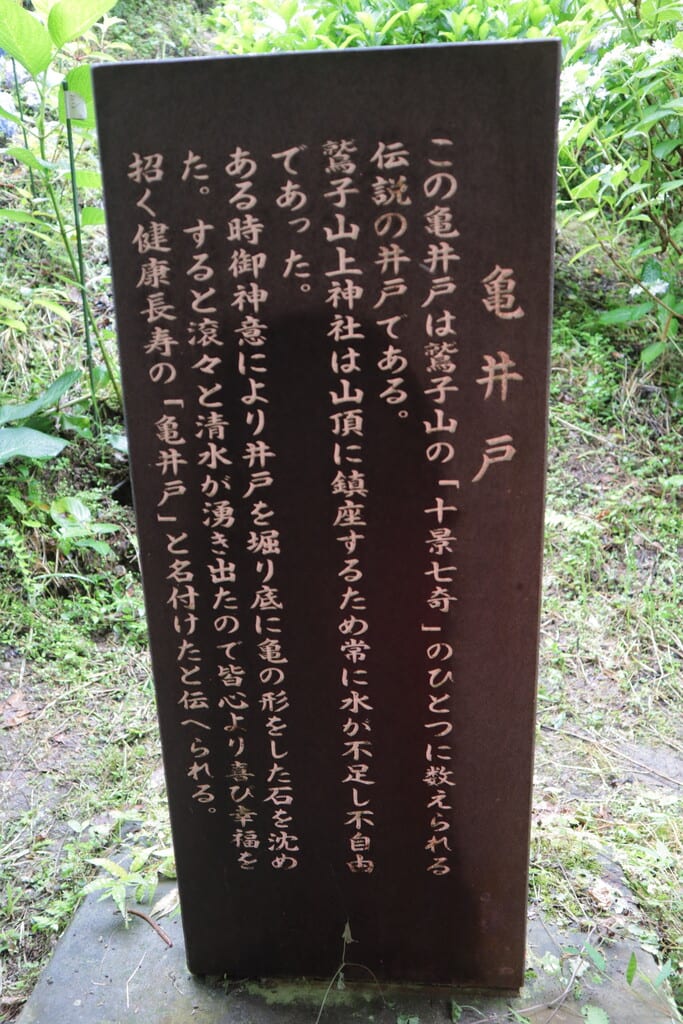 亀井戸
この亀井戸は鷲子山の「十景七奇」のひとつに数えられる
伝説の井戸である。
鷲子山上神社は山頂に鎮座するため常に水が不足し不自由
であった。
ある時御神意により井戸を堀り底に亀の形をした石を沈め
た。すると滾々と清水が湧き出たので皆心より喜び幸福を
招く健康長寿の「亀井戸」と名付けたと伝へられる。